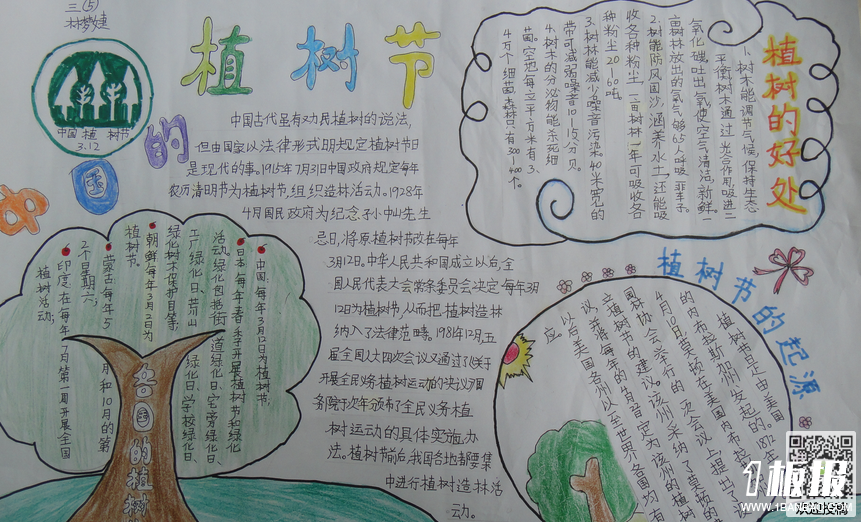 三(5)
林梦婕
中国植树节
3.12
植树节
中国的
中国古代虽有劝民植树的说法,
但由国家以法律形式明规定植树节日
是现代的事。1915年7月31日中国政府规定每年
农历清明节为植树节,组织造林活动。1928年
4月国民政府为纪念孙中山先生
忌日,将原植树节改在每年
3月12日。中华人民共和国成立以后,全
国人民代表大会常务委员会决定每年3月
12日为植树节,从而把植树造林
纳入了法律范畴。1981年12月,五
届全国人大四次会议又通过了《关于
开展全民义务植树运动的决议》国
务院于次年颁布了全民义务植
树运动的具体实施办
法。植树节前后,我国各地都要集
中进行植树造林活
动。
植树的好处
1.树木能调节气候,保持生态
平衡树木通过光合作用吸进二
氧化碳,吐出氧使空气清洁、新鲜一
亩树林放出的氧气够65人呼吸一辈子。
2.树能防风固沙,涵养水土,还能吸
收各种粉尘一亩树林一年可吸收各
种粉尘20-60吨。
3.树林能减少噪音污染。40米宽的
带可减弱噪音10-15分贝。
4.树木的分泌物能杀死细
菌。空地每立平方米有3、
4万个细菌,森林只有300-400个。
各国的植树
中国:每年3月12日为植树节。
日本:每年春季开展植树节和绿化
活动。绿化包括街道绿化日、宅旁绿化日、
工厂绿化日、荒山绿化日、学校绿化日、
绿化树木保护日等。
朝鲜每年3月2日为
植树节。
蒙古每年5月和10月的第
2个星期六;
印度:在每年7月第一周开展全国
植树活动;
植树节的起源
植树节是由美国
的内布拉斯加州发起的。1872年
4月10日,莫顿在美国内布拉
园林协会举行的一次会议上提出了
立植树节的建议。该州采纳了莫顿的
议,并将每年的
定为该州的植树
以后美国各州以至世界各国均有
应。
1板报
WWW.1BANBAO.COM
欢迎投稿